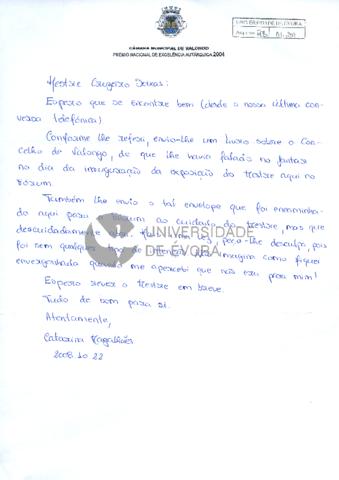 CÂMARA MUNICIPAL DE VALONGO
PRÉMIO NACIONAL DE EXCELÊNCIA AUTÁRQUICA 2004
Mestre Cruzeiro Seixas:
Espero que se encontre bem (desde a nossa última con-
versa telefónica)
Conforme lhe referi, envio-lhe um livro sobre o Con-
celho de Valongo, de que lhe havia falado no jantar
no dia da inauguração da exposição do Mestre aqui no
Fórum.
Também lhe envio o tal envelope que foi encaminha-
do aqui para o Fórum ao cuidado do Mestre, mas que
descuidadamente abri. Mais uma vez, peço-lhe desculpa, pois
foi sem qualquer tipo de intenção. Nem imagina como fiquei
envergonhada quando me apercebi que não era para mim!
Espero rever o Mestre em breve.
Tudo de bom para si.
Atentamente,
Catarina Magalhães
2008.10.22
UNIVERSIDADE
DE ÉVORA